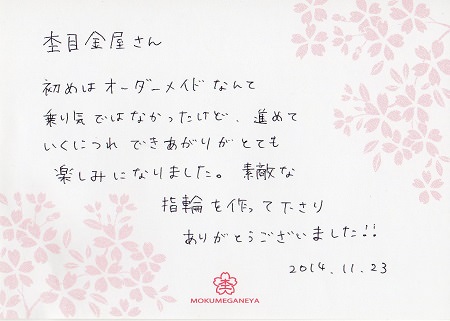 杢目金屋さん
初めはオーダーメイドなんて
乗り気ではなかったけど、進めて
いくにつれ できあがりがとても
楽しみになりました。素敵な
指輪を作って下さり
ありがとうございました!!
2014.11.23
杢
MOKUMEGANEYA